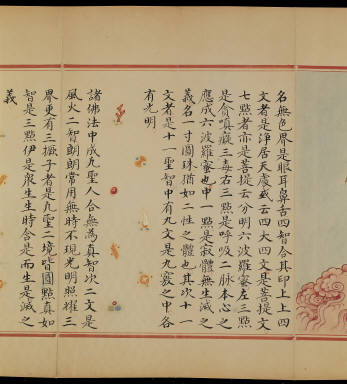 名無色界是眼耳鼻舌四智合其印上上四
文者是淨居天慶威云四大四文是菩提文
七點者亦是菩提云分明六波羅蜜左三點
是貪嗔癡三毒右三點是呼吸二脉本心之
應成六波羅蜜也中一點是寂體無生滅之
義名一寸圓珠猶如二性之體也其次十一
文者是十一聖智中有九文是九竅之中各
有光明
諸佛法中成九聖人合無為真智次二文是
風火二智朗朗常用無時不現光明照耀三
界更有三撅子者是九聖二境皆圓點真如
智是三點伊是眾生生時含是而生是滅之
義